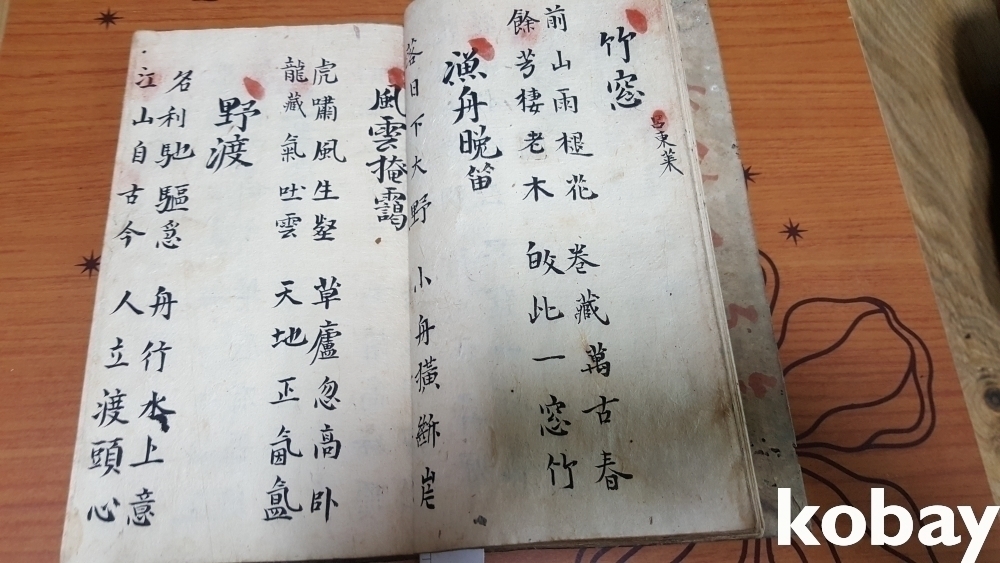 竹窓
呂東萊
前山雨褪花 卷藏萬古春
餘芳棲老木 皎此一窓竹
漁舟晩笛
落日下大野 小舟橫斷岸
風雲掩靄
虎嘯風生壑 草廬忽高卧
龍藏氣吐雲 天地正氤氳
野渡
名利馳驅急 舟行水上意
江山自古今 人立渡頭心
kobay